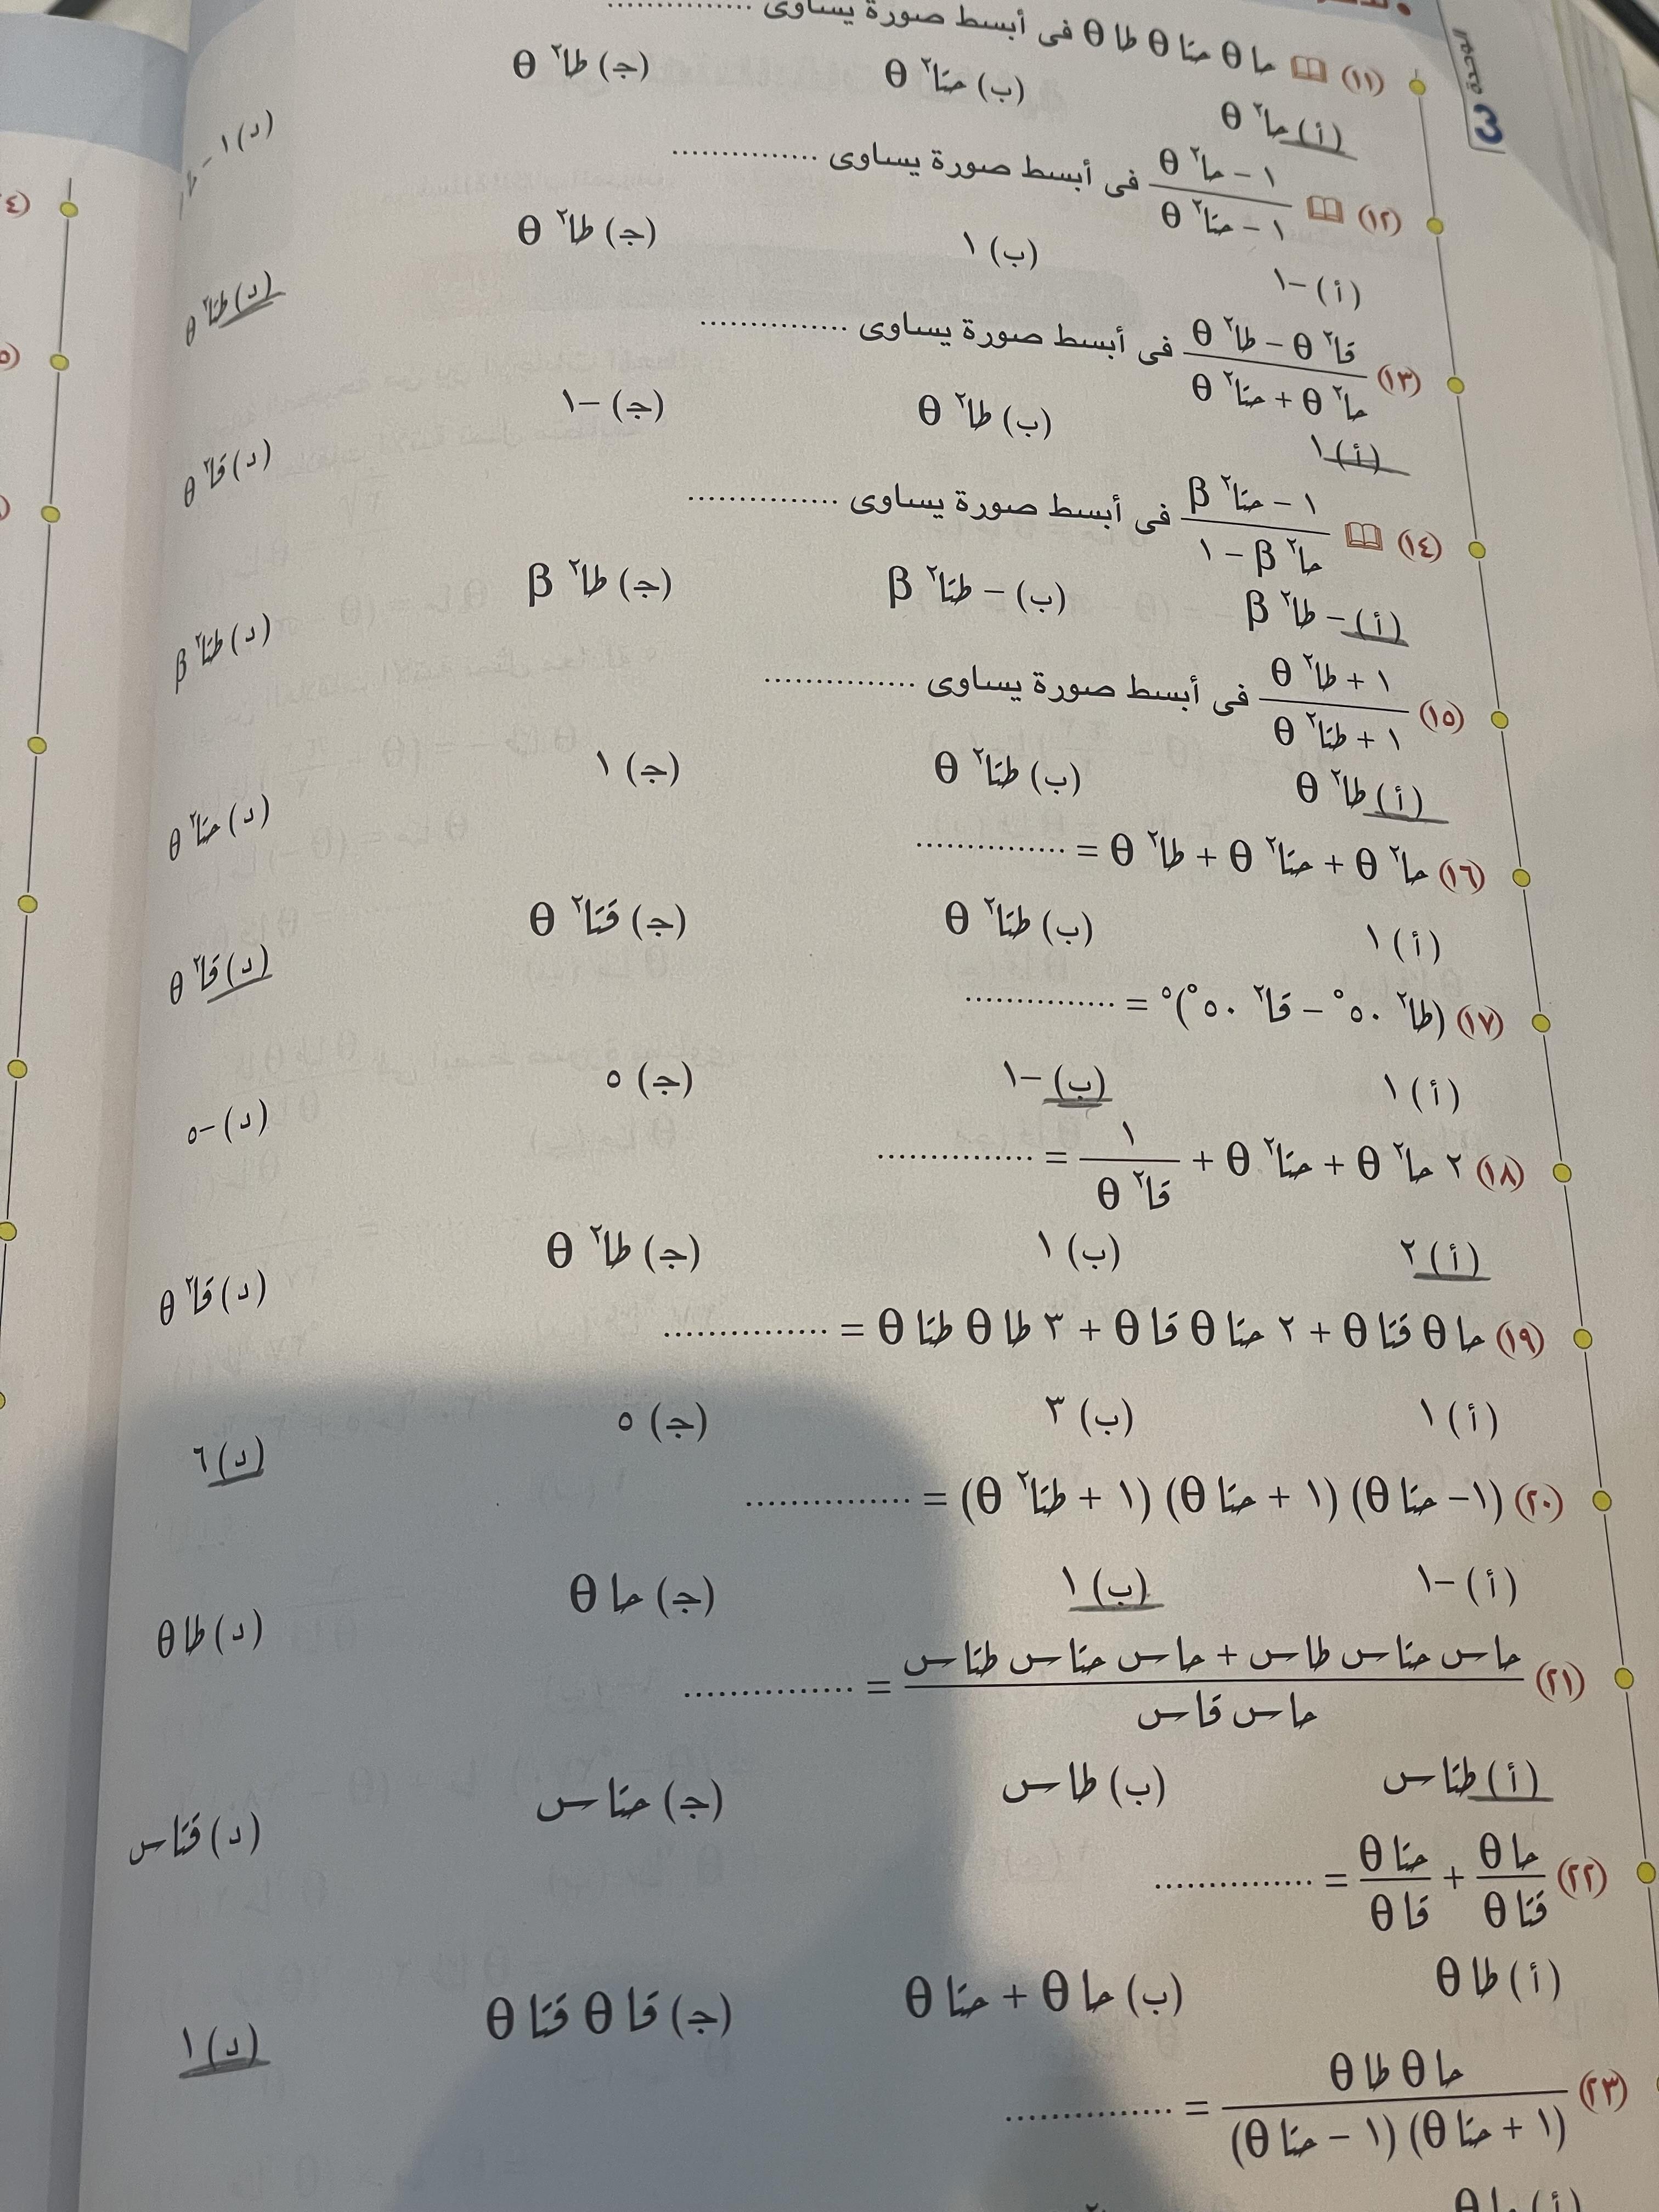 الوحدة
3
(١١) حا θ حتا θ طا θ فى أبسط صورة يساوى ...............
(أ) حا٢ θ (ب) حتا٢ θ (جـ) طا٢ θ (د) ١ –
(١٢) ١ – حا٢ θ / ١ – حتا٢ θ فى أبسط صورة يساوى ...............
(أ) –١ (ب) ١ (جـ) طا٢ θ (د) طتا٢ θ
(١٣) قا٢ θ – طا٢ θ / حا٢ θ + حتا٢ θ فى أبسط صورة يساوى ...............
(أ) ١ (ب) طا٢ θ (جـ) –١ (د) قا٢ θ
(١٤) ١ – حتا٢ β / حا٢ β – ١ فى أبسط صورة يساوى ...............
(أ) – طا٢ β (ب) – طتا٢ β (جـ) طا٢ β (د) طتا٢ β
(١٥) ١ + طا٢ θ / ١ + طتا٢ θ فى أبسط صورة يساوى ...............
(أ) طا٢ θ (ب) طتا٢ θ (جـ) ١ (د) حتا٢ θ
(١٦) حا٢ θ + حتا٢ θ + طا٢ θ = ...............
(أ) ١ (ب) طتا٢ θ (جـ) قتا٢ θ (د) قا٢ θ
(١٧) (طا٢ ٥٠° – قا٢ ٥٠°)٥ = ...............
(أ) ١ (ب) –١ (جـ) ٥ (د) –٥
(١٨) ٢ حا٢ θ + حتا٢ θ + ١ / قا٢ θ = ...............
(أ) ٢ (ب) ١ (جـ) طا٢ θ (د) قا٢ θ
(١٩) حا θ قتا θ + ٢ حتا θ قا θ + ٣ طا θ طتا θ = ...............
(أ) ١ (ب) ٣ (جـ) ٥ (د) ٦
(٢٠) (١– حتا θ) (١ + حتا θ) (١ + طتا٢ θ) = ...............
(أ) –١ (ب) ١ (جـ) حا θ (د) طا θ
(٢١) حا س حتا س طا س + حا س حتا س طتا س / حا س قا س = ...............
(أ) طتا س (ب) طا س (جـ) حتا س (د) قتا س
(٢٢) حا θ / قتا θ + حتا θ / قا θ = ...............
(أ) طا θ (ب) حا θ + حتا θ (جـ) قا θ قتا θ (د) ١
(٢٣) حا θ طا θ / (١ + حتا θ) (١ – حتا θ) = ...............